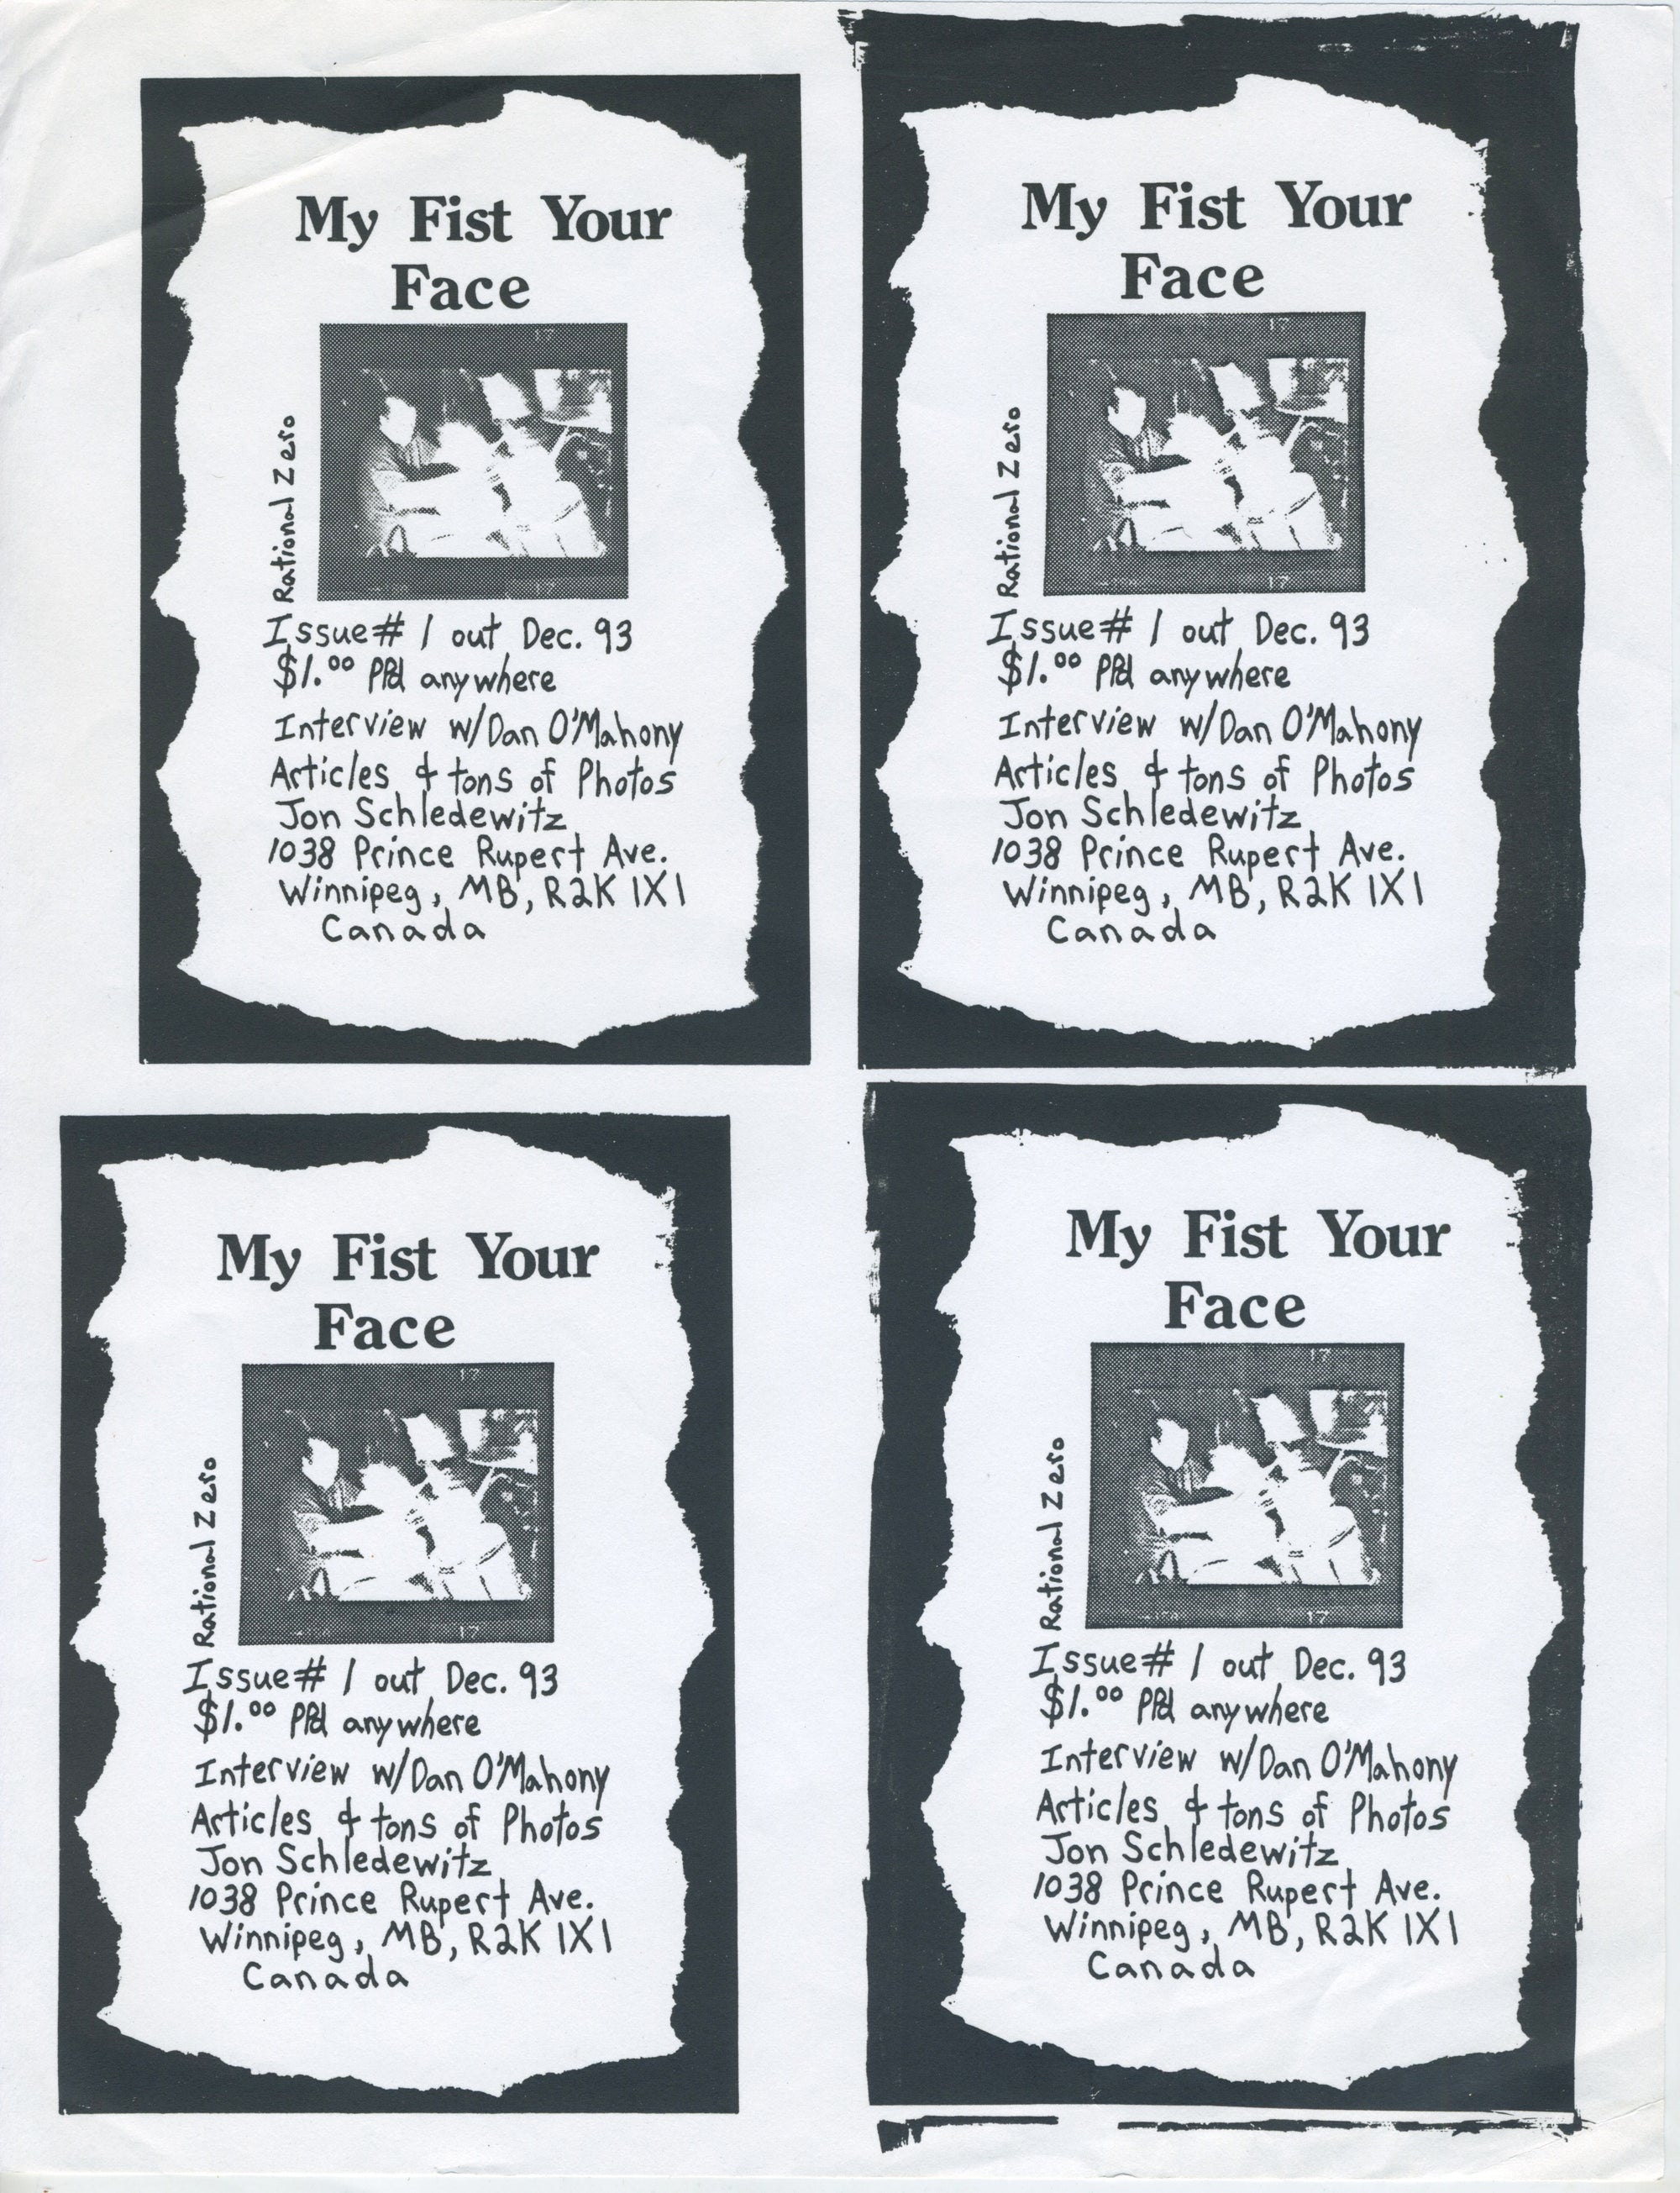 My Fist Your
Face
17
Rational Zero
17
Issue# 1 out Dec. 93
$1.00 PPd anywhere
Interview w/Dan O'Mahony
Articles & tons of Photos
Jon Schledewitz
1038 Prince Rupert Ave.
Winnipeg, MB, R2K 1X1
Canada
My Fist Your
Face
17
Rational Zero
17
Issue# 1 out Dec. 93
$1.00 PPd anywhere
Interview w/Dan O'Mahony
Articles & tons of Photos
Jon Schledewitz
1038 Prince Rupert Ave.
Winnipeg, MB, R2K 1X1
Canada
My Fist Your
Face
17
Rational Zero
17
Issue# 1 out Dec. 93
$1.00 PPd anywhere
Interview w/Dan O'Mahony
Articles & tons of Photos
Jon Schledewitz
1038 Prince Rupert Ave.
Winnipeg, MB, R2K 1X1
Canada
My Fist Your
Face
17
Rational Zero
17
Issue# 1 out Dec. 93
$1.00 PPd anywhere
Interview w/Dan O'Mahony
Articles & tons of Photos
Jon Schledewitz
1038 Prince Rupert Ave.
Winnipeg, MB, R2K 1X1
Canada